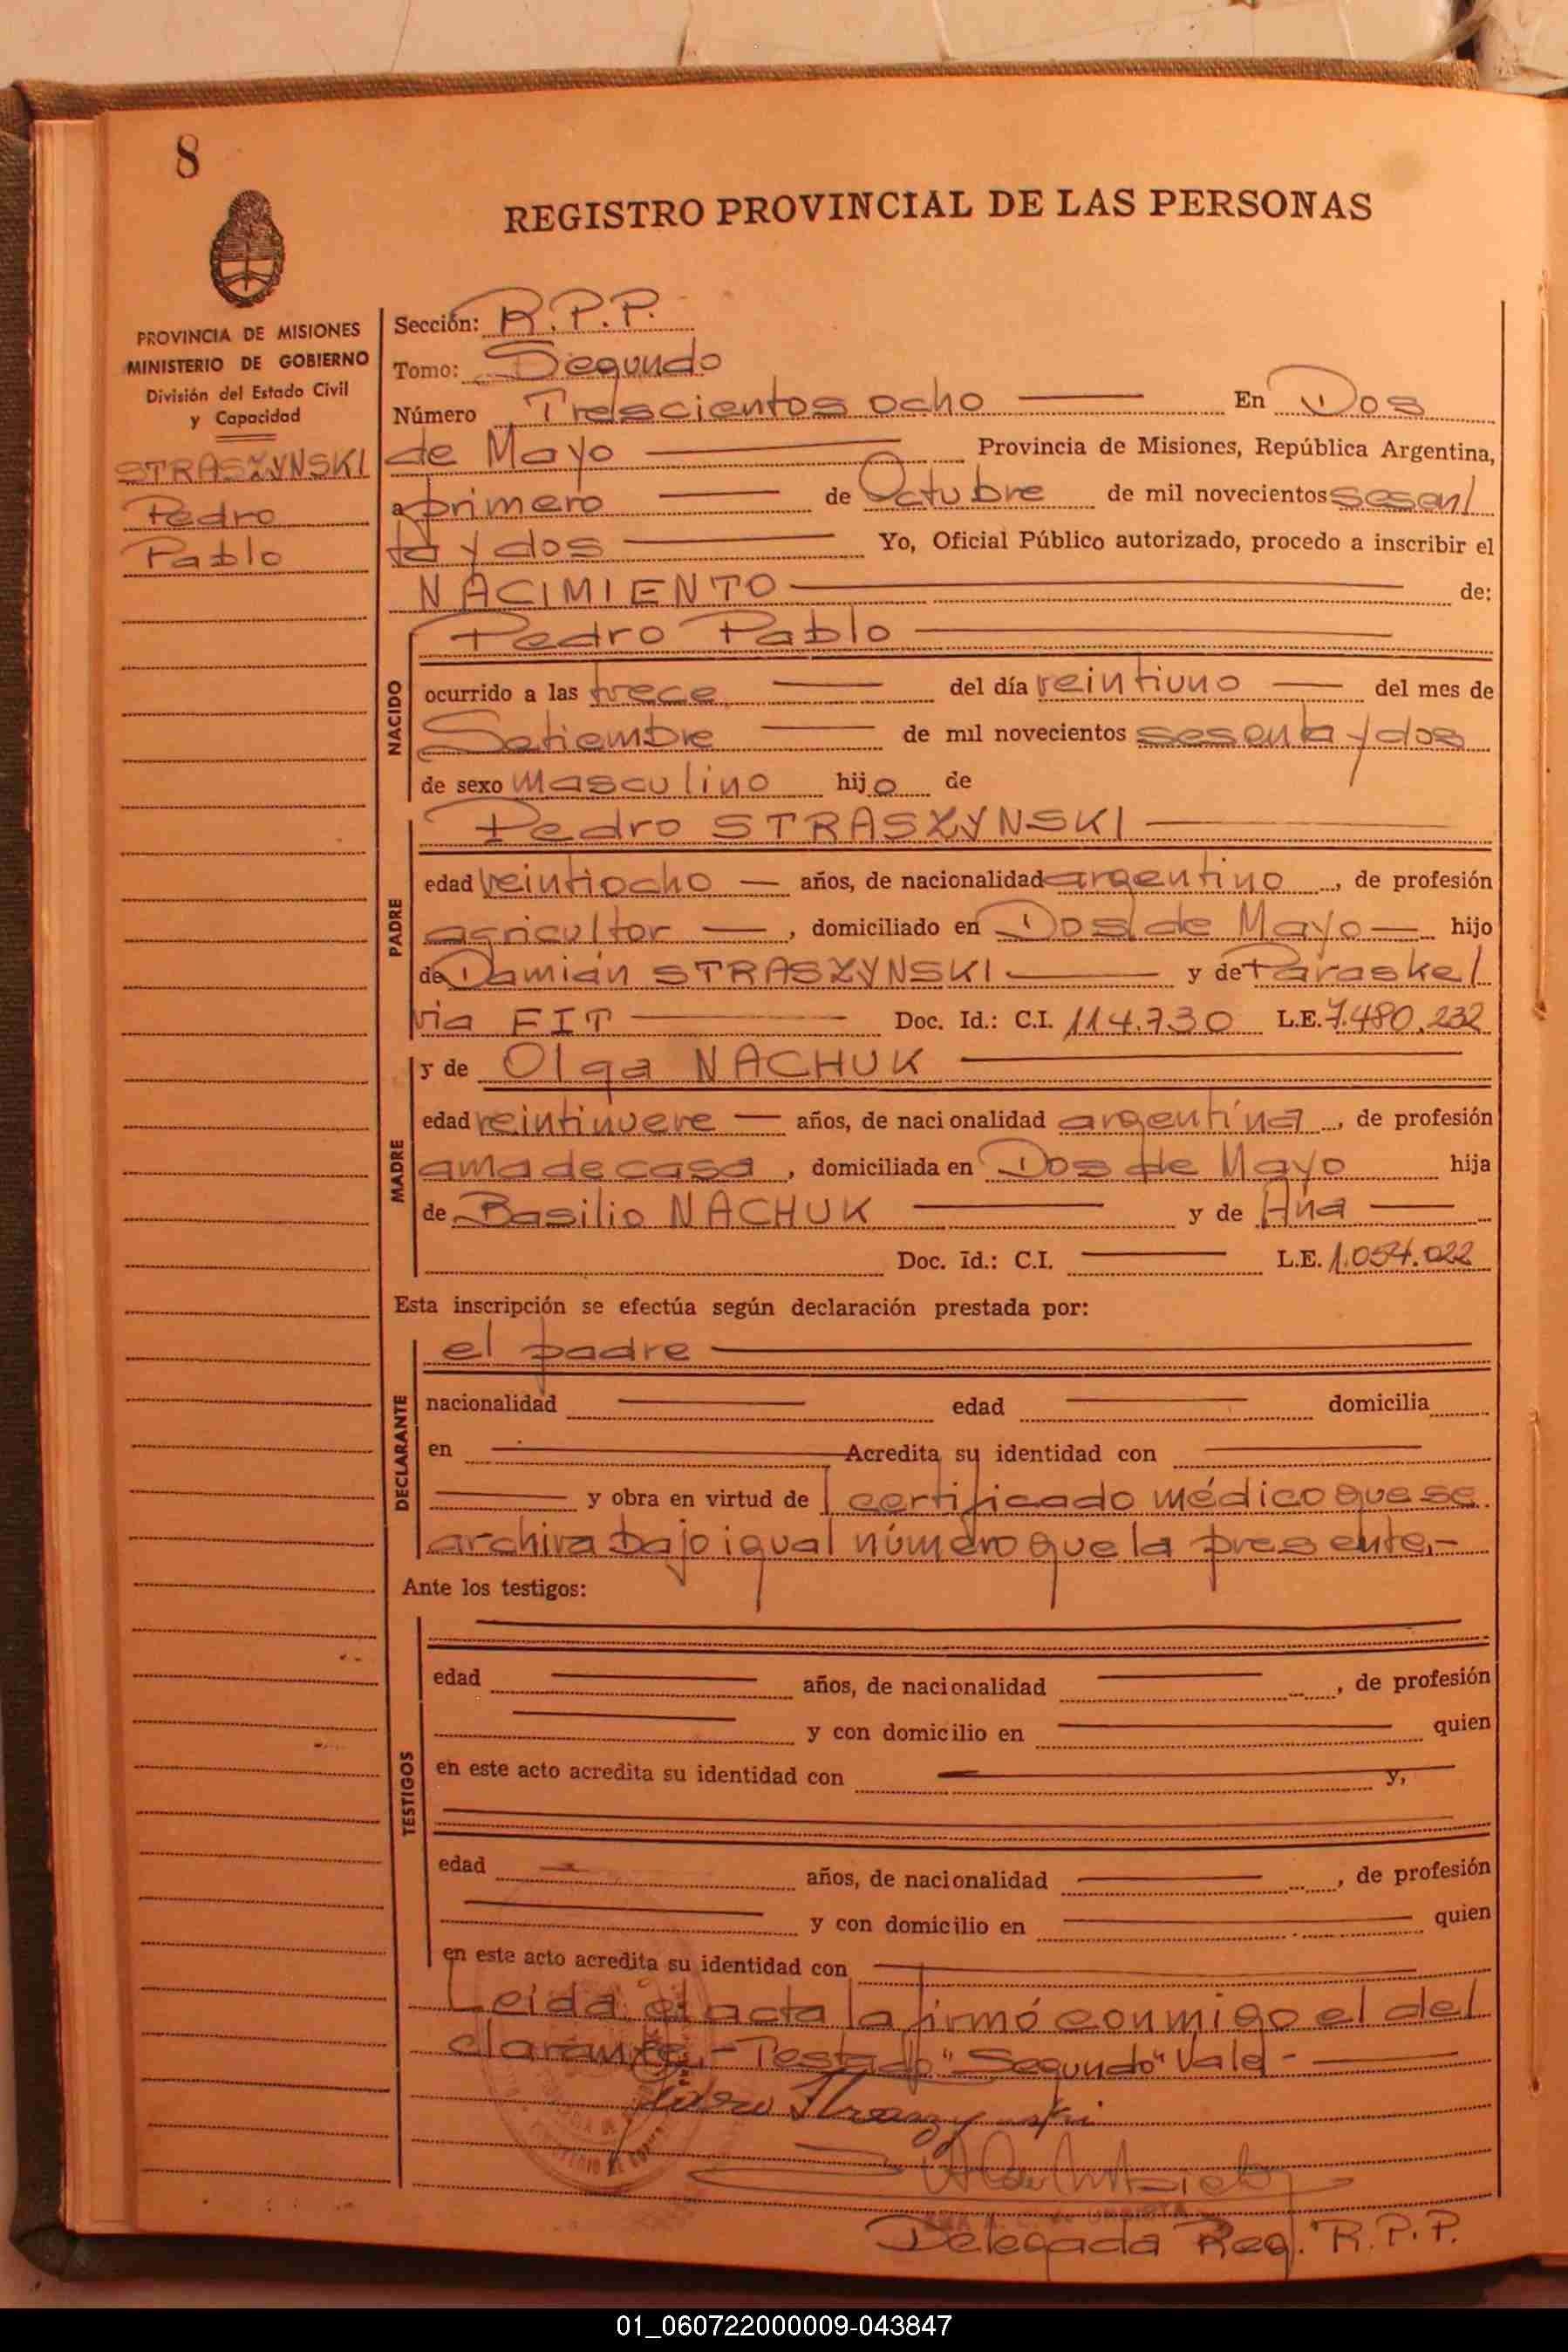 8
REGISTRO PROVINCIAL DE LAS PERSONAS
PROVINCIA DE MISIONES
MINISTERIO DE GOBIERNO
División del Estado Civil
y Capacidad
STRASZYNSKI
Pedro
Pablo
Sección: R.P.P.
Tomo: Segundo
Número Trescientos ocho En Dos
de Mayo Provincia de Misiones, República Argentina,
a primero de Octubre de mil novecientos sesen/
ta y dos Yo, Oficial Público autorizado, procedo a inscribir el
NACIMIENTO de:
NACIDO
Pedro Pablo
ocurrido a las trece del día veintiuno del mes de
Setiembre de mil novecientos sesenta y dos
de sexo masculino hijo de
PADRE
Pedro STRASZYNSKI
edad veintiocho años, de nacionalidad argentino, de profesión
agricultor, domiciliado en Dos de Mayo hijo
de Damián STRASZYNSKI y de Paraske/
via FIT Doc. Id.: C.I. 114.730 L.E. 7.480.232
MADRE
y de Olga NACHUK
edad veintinueve años, de nacionalidad argentina, de profesión
ama de casa, domiciliada en Dos de Mayo hija
de Basilio NACHUK y de Ana
Doc. Id.: C.I. L.E. 1.054.022
Esta inscripción se efectúa según declaración prestada por:
DECLARANTE
el padre
nacionalidad edad domicilia
en Acredita su identidad con
y obra en virtud de certificado médico que se
archiva bajo igual número que la presente.-
Ante los testigos:
TESTIGOS
edad años, de nacionalidad , de profesión
y con domicilio en quien
en este acto acredita su identidad con y,
edad años, de nacionalidad , de profesión
y con domicilio en quien
en este acto acredita su identidad con
Leida el acta la firmó conmigo el de/
clarante.- Testado "Segundo" Vale -
Pedro Straszynski
Delegada Reg. R.P.P.
01_060722000009-043847